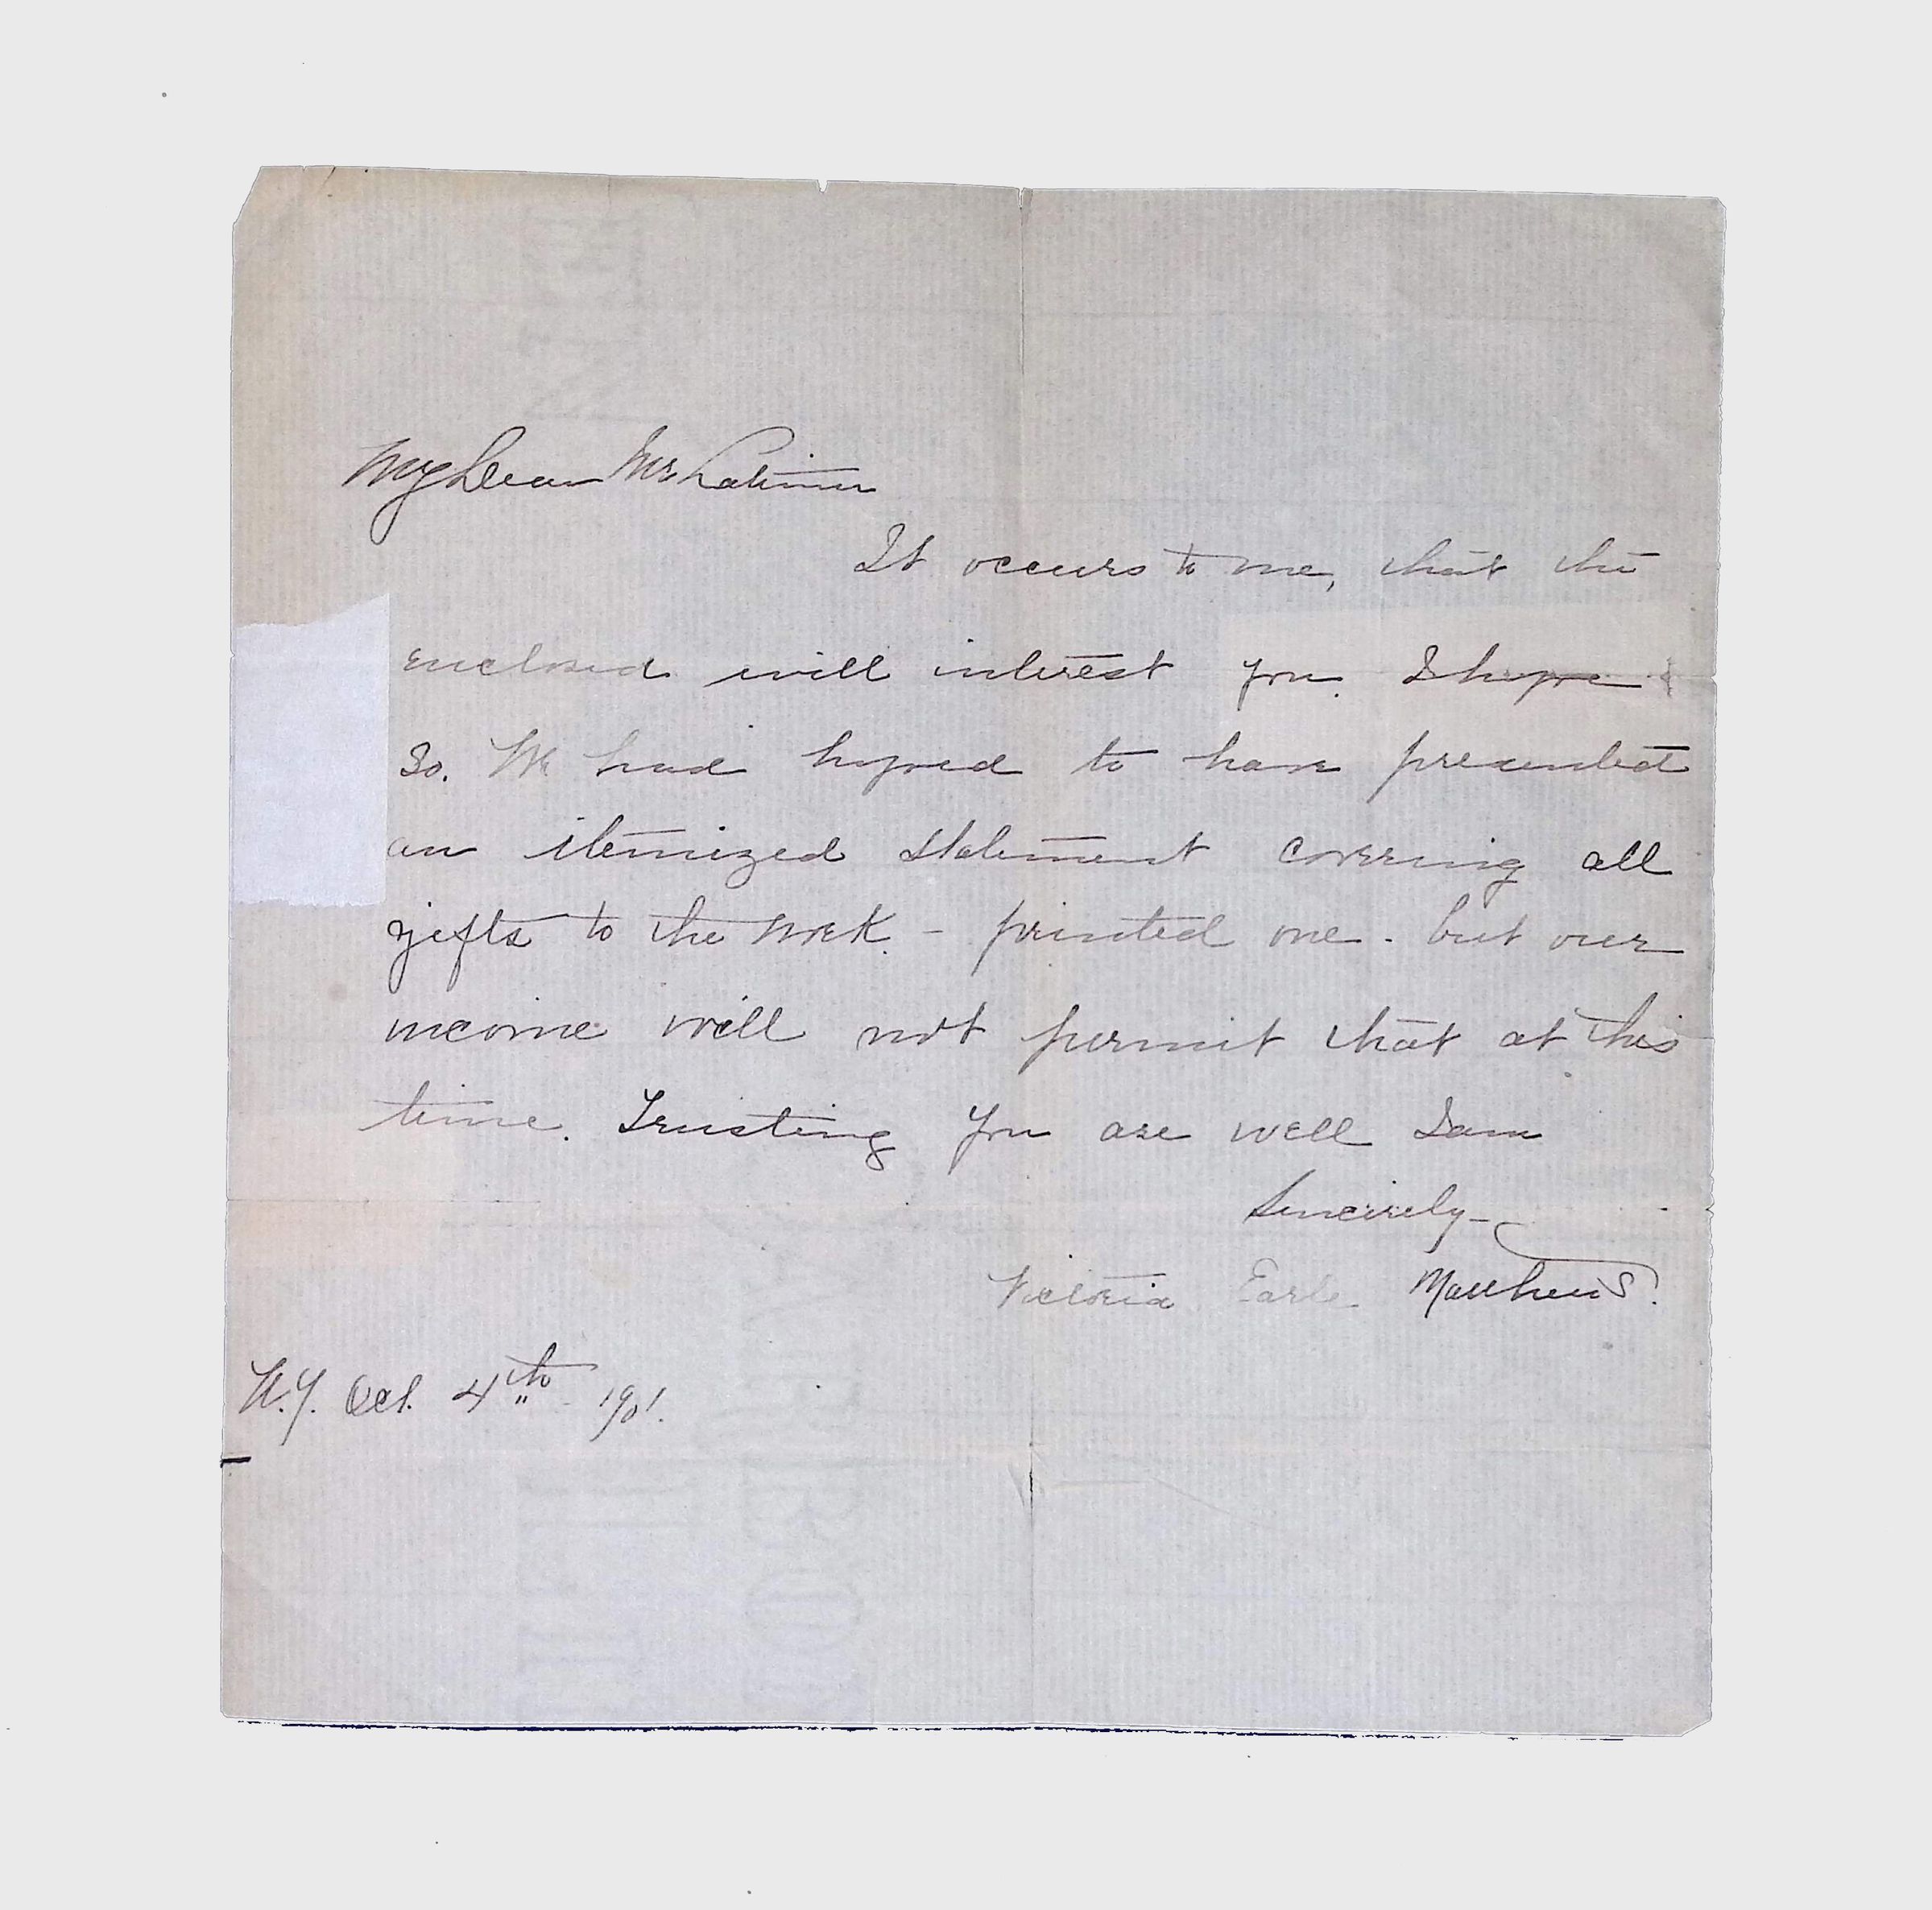 My Dear Mr Latimer
It occurs to me, that the
enclosed will interest you. I hope
so. We had hoped to have presented
an itemized statement covering all
gifts to the work. - printed one - but our
income will not permit that at this
time. Trusting you are well I am
Sincerely-
Victoria Earle Matthews.
N.Y. Oct. 4th 1901.